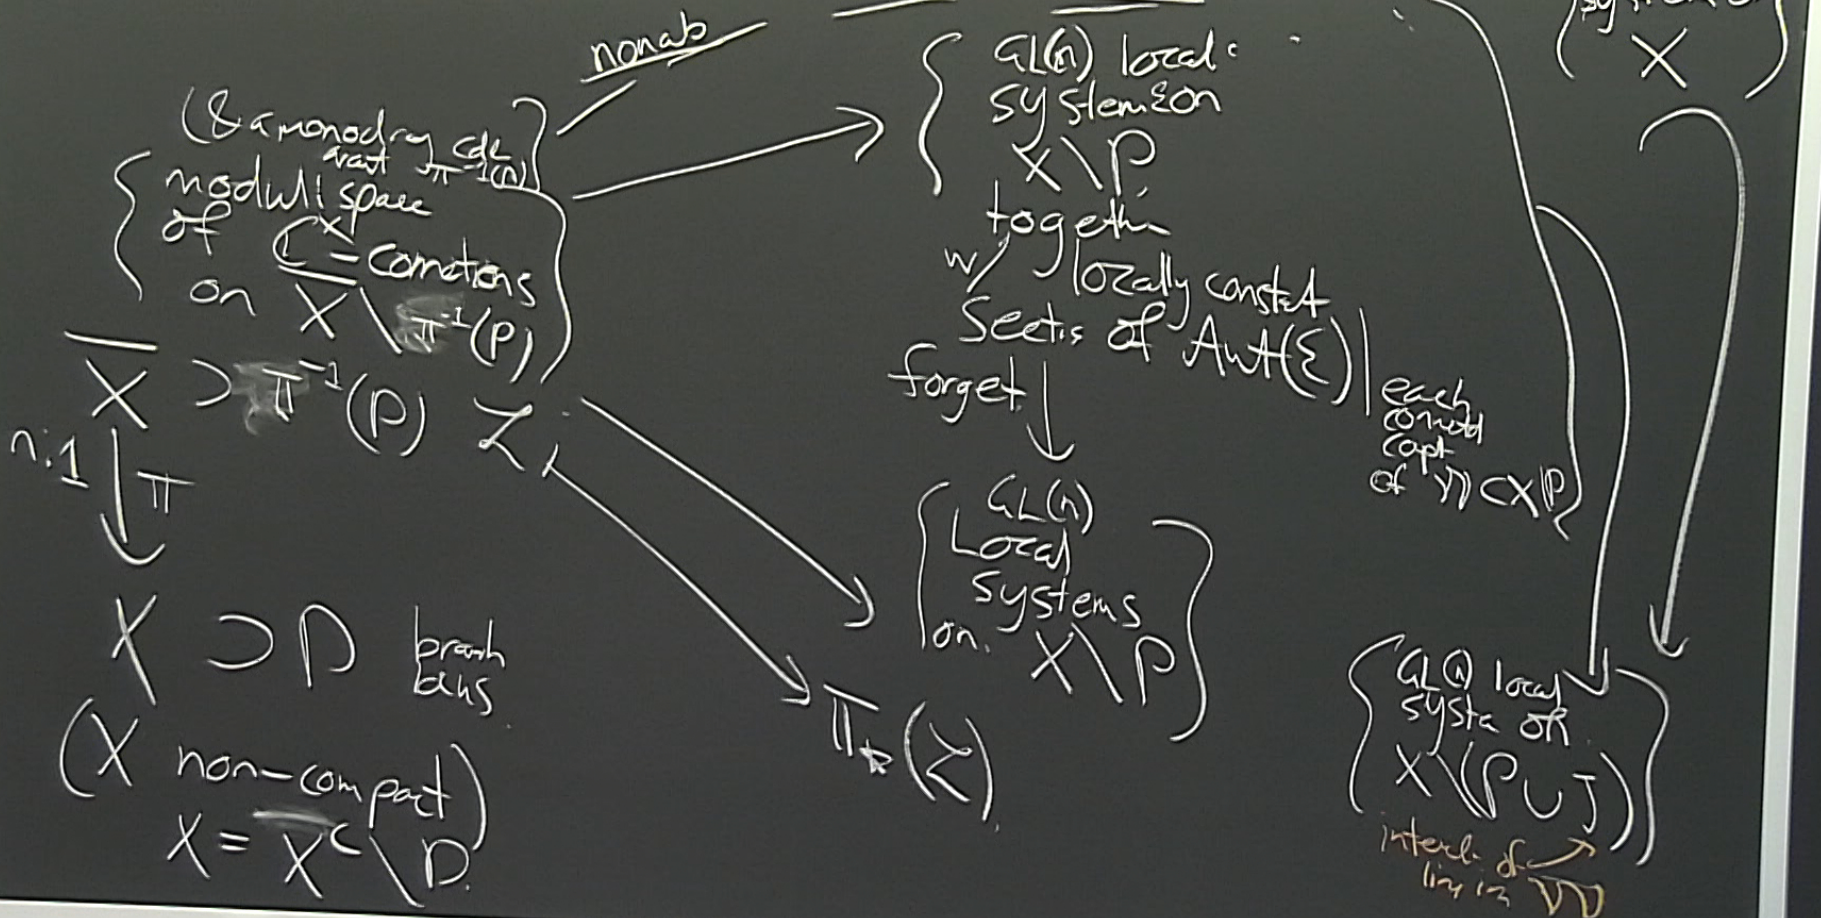 nonab
(& a monodromy cdt
arout π⁻¹(p))
moduli space
of ℂˣ-conections
on X̄ \ π⁻¹(P)
X̄ ⊃ π⁻¹(P) ℒ
n:1
π
X ⊃ P branch
locus
(X non-compact)
X = X̄ᶜ \ D
GL(n) local
systems ℰ on
X \ P,
together
w/ locally constant
Sectis of Aut(ℰ)|
each
connectd
capt
of W ⊂ X\P
forget
GL(n)
Local
Systems
on X \ P
π_*(ℒ)
X
GL(n) local
syste on
X \ (P ∪ J)
intersect. of
lin in W